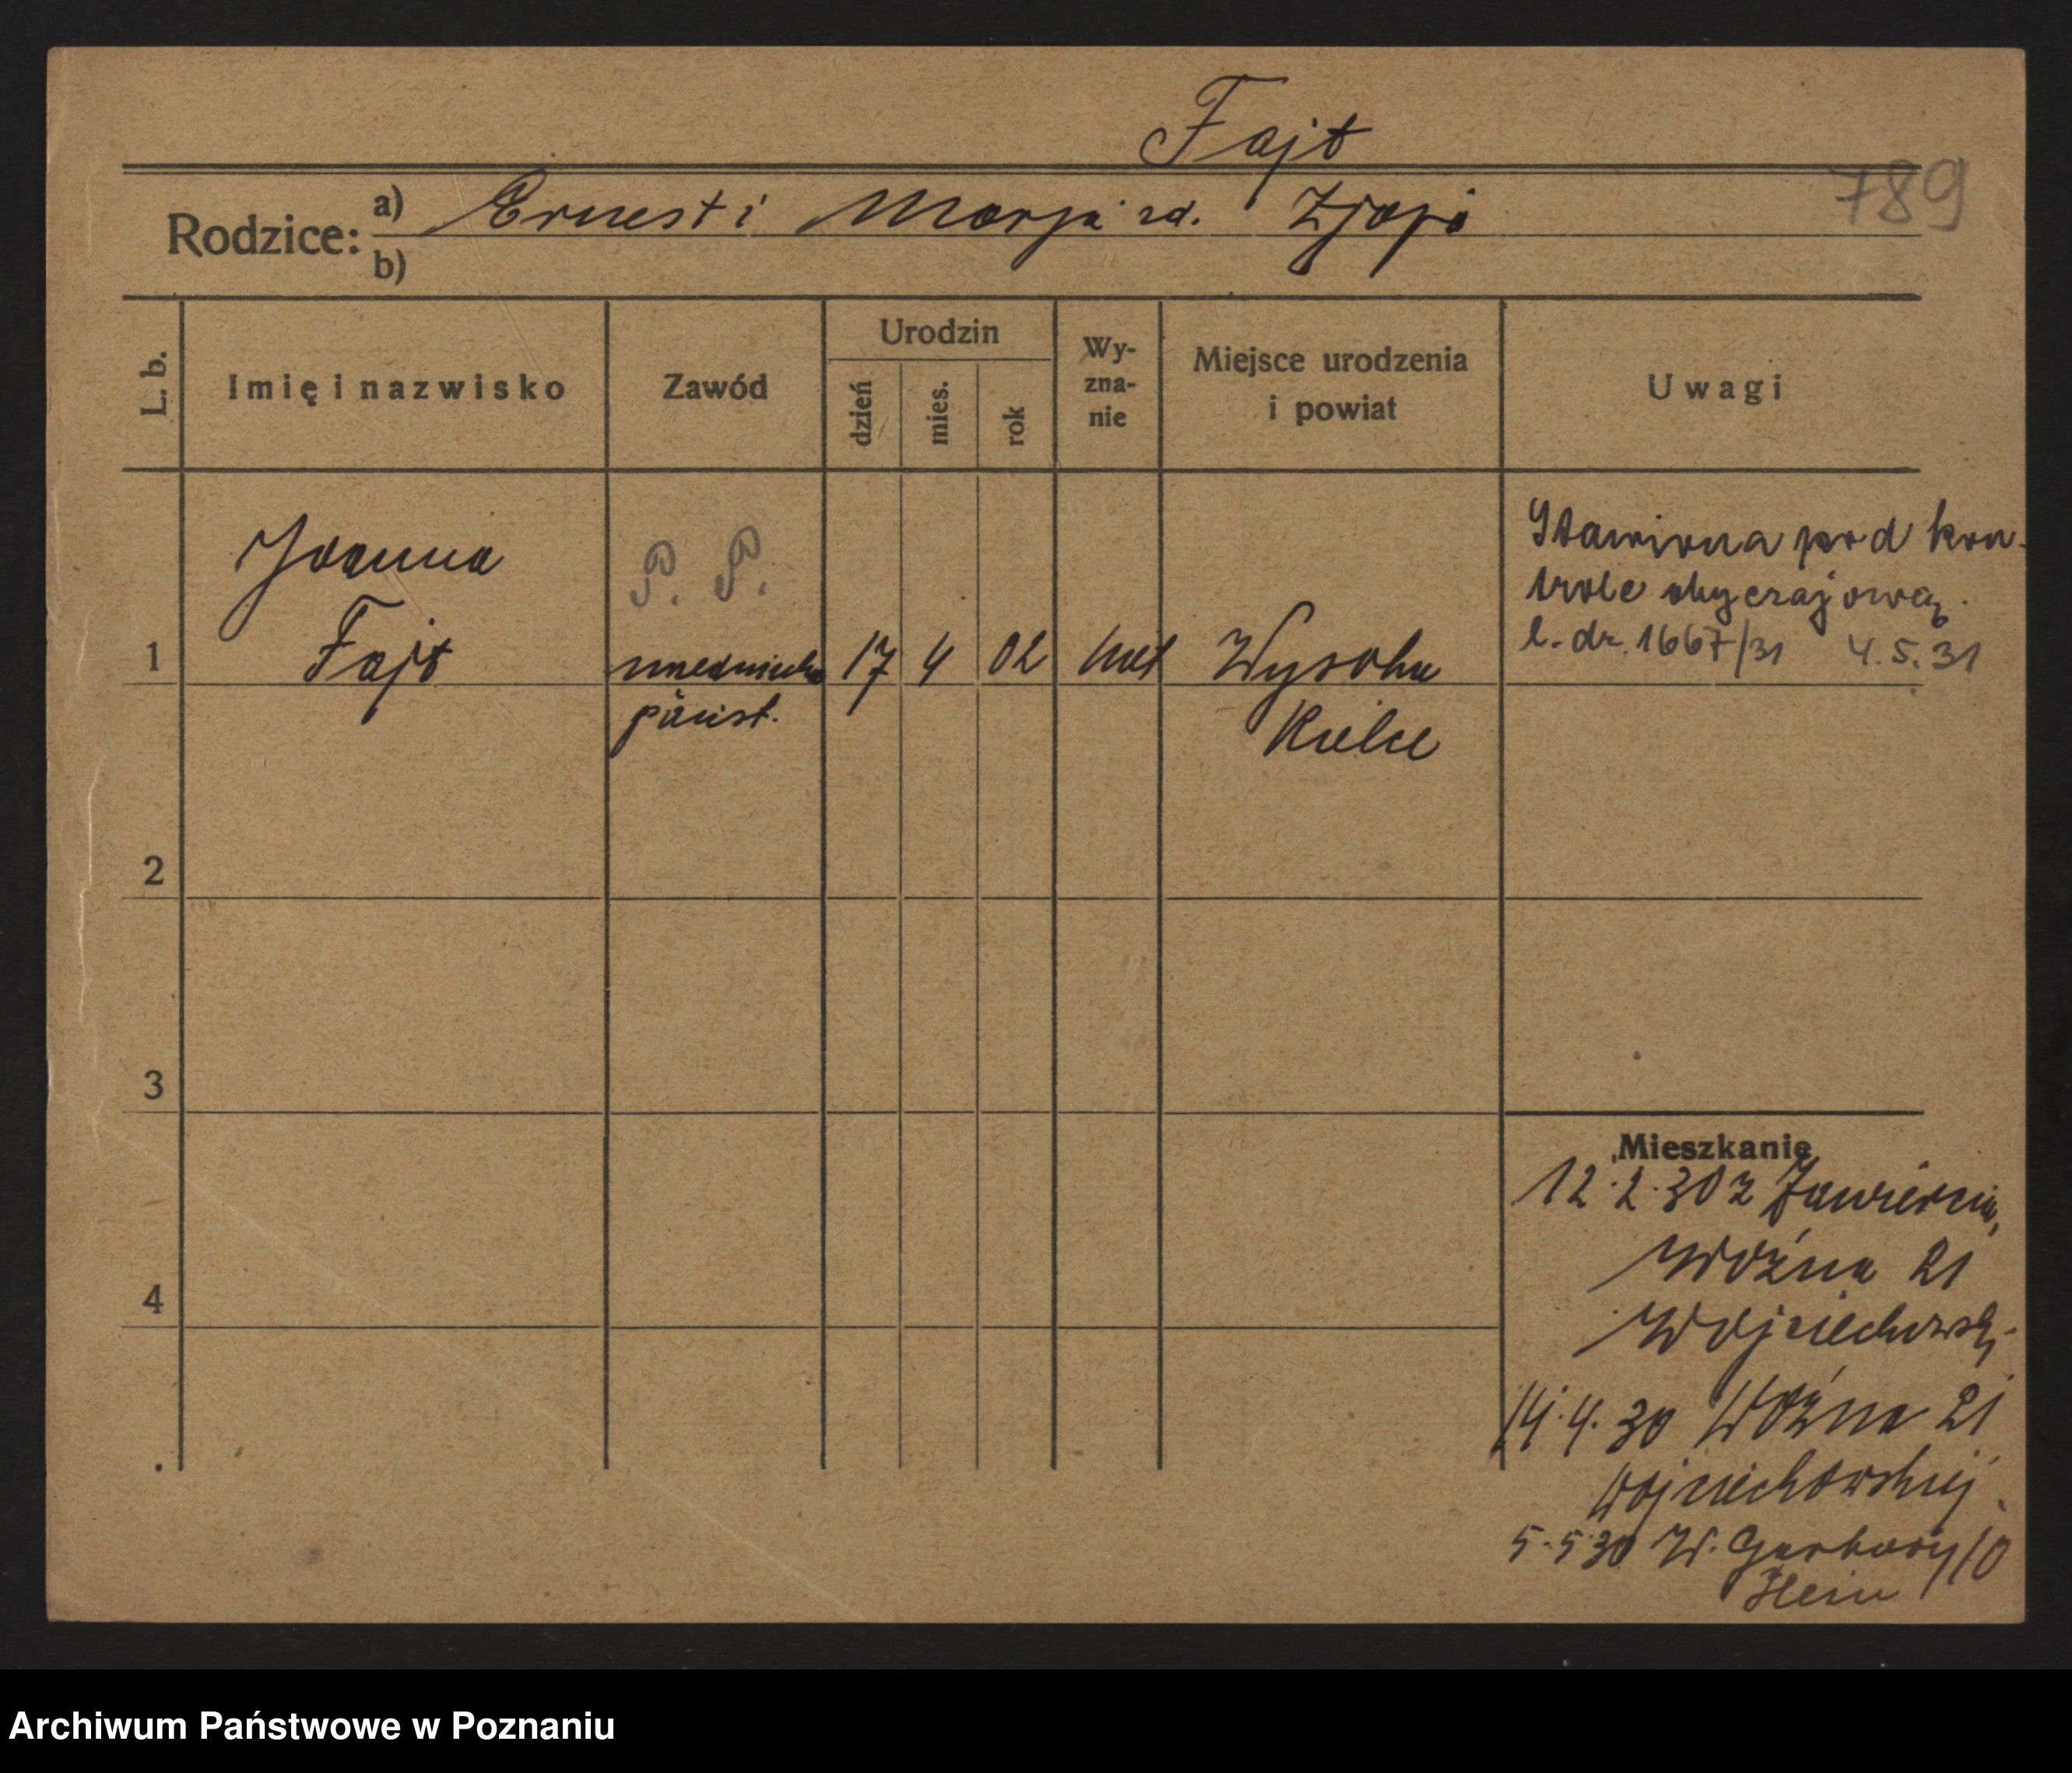 Fajt
789
Rodzice: a) Ernest i Marja zd. Zjapa
b)
L. b.
Imię i nazwisko
Zawód
Urodzin
dzień
mies.
rok
Wy-
zna-
nie
Miejsce urodzenia
i powiat
Uwagi
1
Joanna
Fajt
P. P.
urzędniczka
państ.
17
4
02
kat
Wysoka
Kielce
Stawiona pod kon-
trole obyczajową.
l. dz. 1667/31 4.5.31
2
3
4
Mieszkanie
12.2.30 z Zawiercia,
Woźna 21
Wojciechowsk.
14.4.30 Woźna 21
Wojciechowskiej
5.5 30 W. Garbary 10
Hein
Archiwum Państwowe w Poznaniu